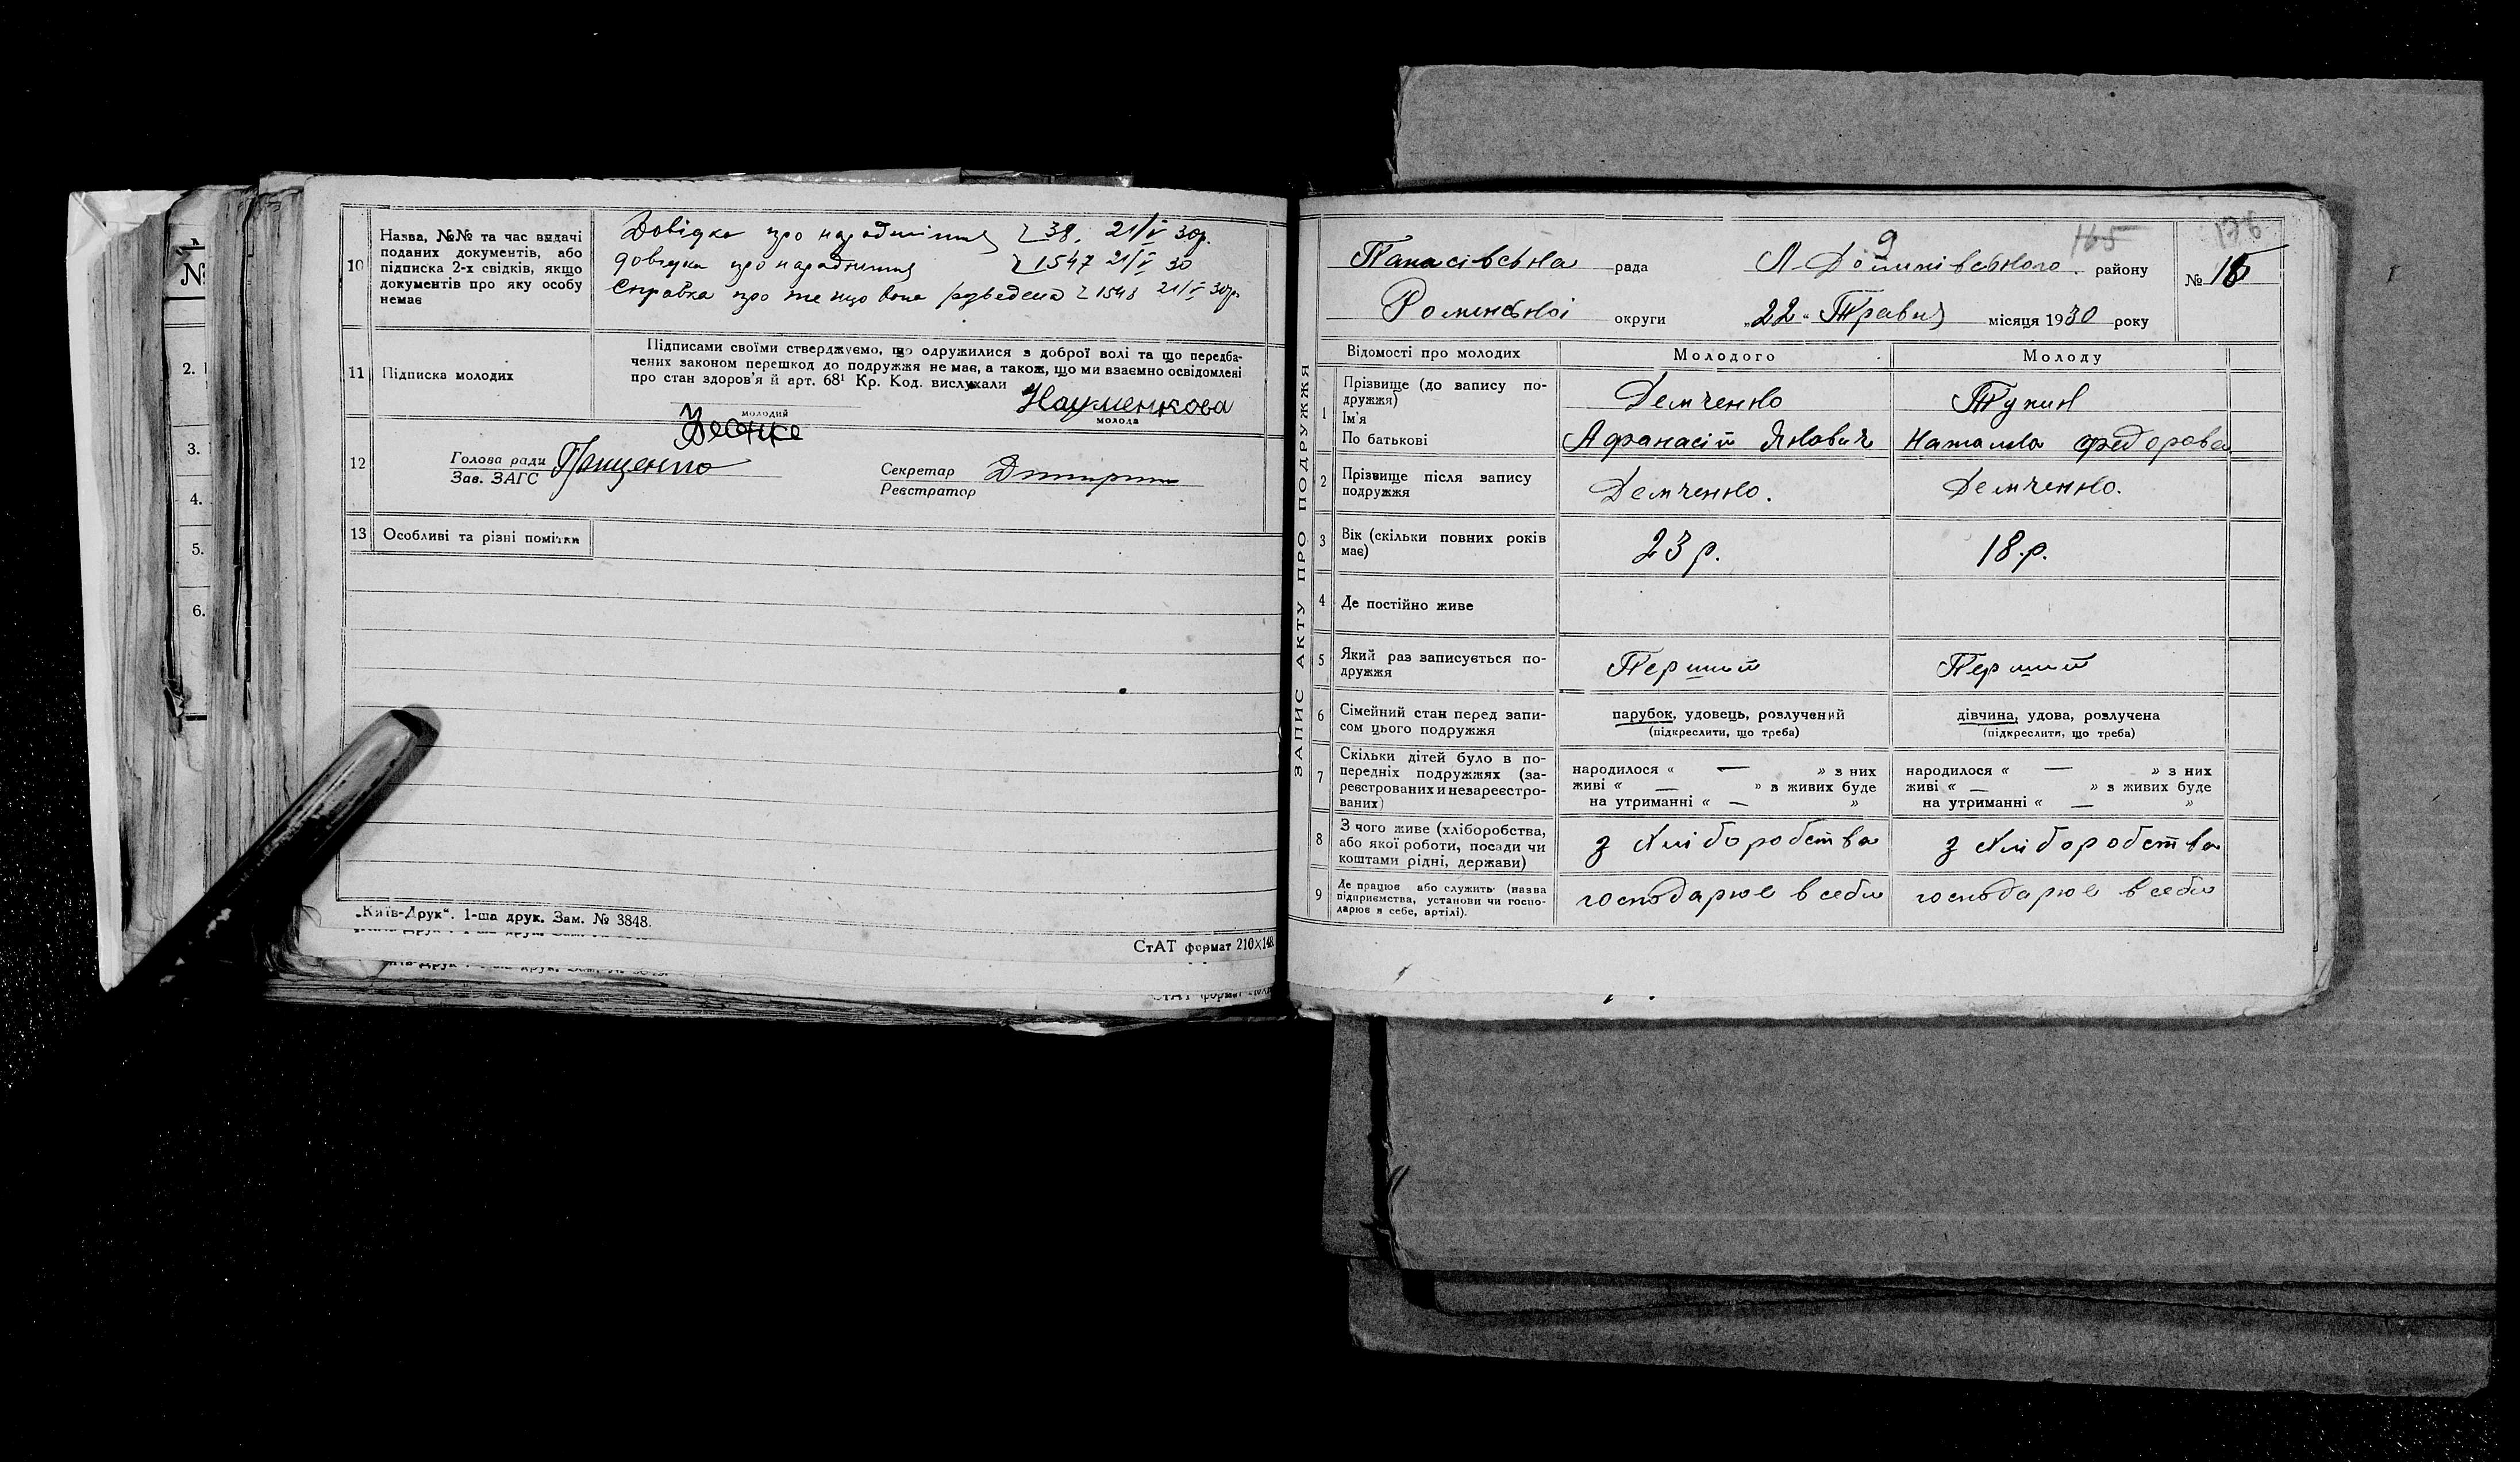 10
Назва, №№ та час видачі
поданих документів, або
підписка 2-х свідків, якщо
документів про яку особу
немає
Довідка про народження 38. 21/V 30р.
довідка про народження 1547 21/V 30
Справка про те що вона розведена 1548 21/V 30р.
11
Підписка молодих
Підписами своїми стверджуємо, що одружилися з доброї волі та що передба-
чених законом перешкод до подружжя не має, а також, що ми взаємно освідомлені
про стан здоров'я й арт. 68¹ Кр. Код. вислухали
молодий
Науменкова
молода
12
Голова ради
Зав. ЗАГС
Грищенко
Секретар
Реєстратор
13
Особливі та різні помітки
„Київ-Друк“. 1-ша друк. Зам. № 3848.
СтАТ формат 210×148
№
2.
3.
4.
5.
6.
ЗАПИС АКТУ ПРО ПОДРУЖЖЯ
165
176
Панасівська рада
району
№ 16
Роменської округи
„22“ Травня місяця 1930 року
Відомості про молодих
Молодого
Молоду
1
Прізвище (до запису по-
дружжя)
Ім'я
По батькові
Демченко
Афанасій Якович
Наталка Федорова
2
Прізвище після запису
подружжя
Демченко.
Демченко.
3
Вік (скільки повних років
має)
23 р.
18.р.
4
Де постійно живе
5
Який раз записується по-
дружжя
Перший
Перший
6
Сімейний стан перед запи-
сом цього подружжя
парубок, удовець, розлучений
(підкреслити, що треба)
дівчина, удова, розлучена
(підкреслити, що треба)
7
Скільки дітей було в по-
передніх подружжях (за-
реєстрованих и незареєстро-
ваних)
народилося « — » з них
живі « — » з живих буде
на утриманні « — »
народилося « — » з них
живі « — » з живих буде
на утриманні « — »
8
З чого живе (хліборобства,
або якої роботи, посади чи
коштами рідні, держави)
з хліборобства
з хліборобства
9
Де працює або служить (назва
підприємства, установи чи госпо-
дарює в себе, артілі).
господарює в себе
господарює в себе